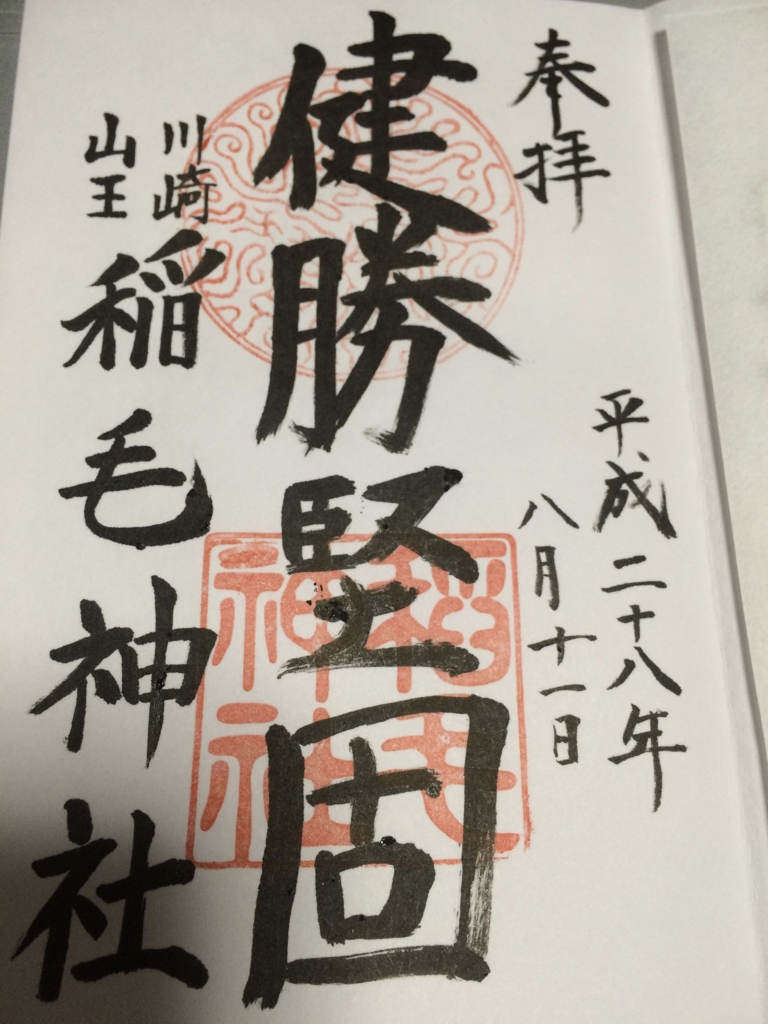 奉拝
平成二十八年
八月十一日
健勝堅固
川崎
山王
稲毛神社
稲毛
神社